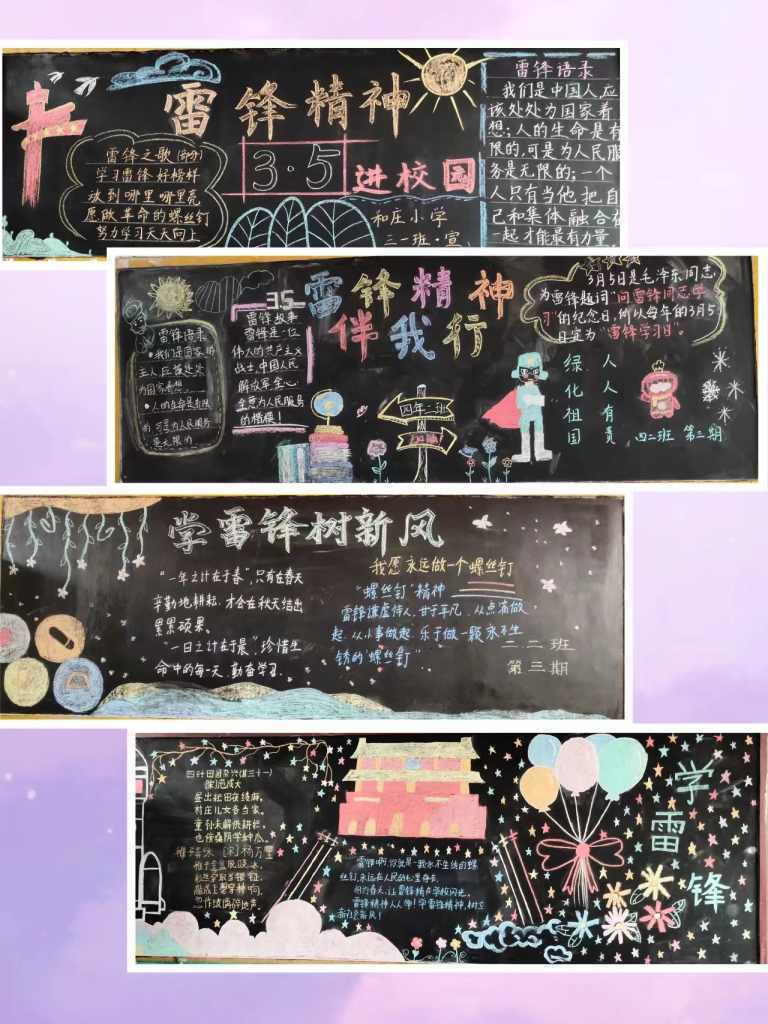 雷锋精神
3·5
进校园
雷锋之歌(部分)
学习雷锋好榜样
放到哪里哪里亮
愿做革命的螺丝钉
努力学习天天向上
和庄小学
三一班·宣
雷锋语录
我们是中国人应
该处处为国家着
想;人的生命是有
限的,可是为人民服
务是无限的;一个
人只有当他把自
己和集体融合在
一起才能最有力量,
雷锋精神
伴我行
雷锋语录
·我们是国家的
主人应该处处
为国家着想
·人的生命是有限
的 可是为人民服务
是无限的
3.5
雷锋故事
雷锋是一位
伟大的共产主义
战士,中国人民
解放军全心
全意为人民服务
的楷模!
四年二班
3月5日是毛泽东同志
为雷锋题词"向雷锋同志学
习"的纪念日,所以每年的3月5
日定为"雷锋学习日"。
绿化祖国
人人有责
四二班 第三期
学雷锋树新风
"一年之计在于春",只有在春天
辛勤地耕耘,才会在秋天结出
累累硕果。
"一日之计在于晨",珍惜生
命中的每一天,勤奋学习.
我愿永远做一个螺丝钉
"螺丝钉"精神
雷锋谦虚待人,甘于平凡,从点滴做
起,从小事做起,乐于做一颗永不生
锈的"螺丝钉"
二二班
第三期
四时田园杂兴(其三十一)
范成大
昼出耘田夜绩麻,
村庄儿女各当家。
童孙未解供耕织,
也傍桑阴学种瓜。
稚子弄冰 [宋]杨万里
稚子金盆脱晓冰,
彩丝穿取当银钲。
敲成玉磬穿林响,
忽作玻璃碎地声。
雷锋啊,你就是一颗永不生锈的螺
丝钉,永远在人民的心里存在。
雷锋精神人人学!学雷锋精神,树立
学雷锋